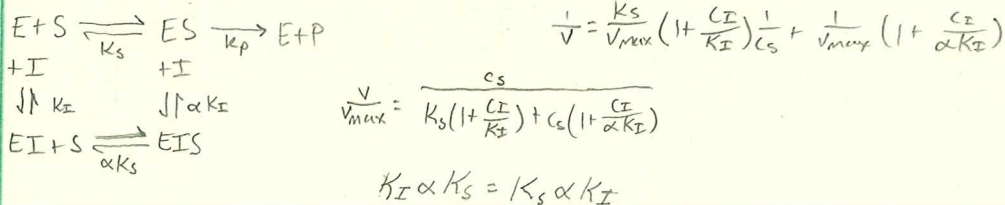 E+S ⇌ ES → E+P
Ks kp
+I +I
⇃↾ KI ⇃↾ αKI
EI+S ⇌ EIS
αKs
1/V = Ks/Vmax (1+ CI/KI) 1/Cs + 1/Vmax (1+ CI/αKI)
V/Vmax = Cs/(Ks(1+ CI/KI) + Cs(1+ CI/αKI))
KI αKs = Ks αKI